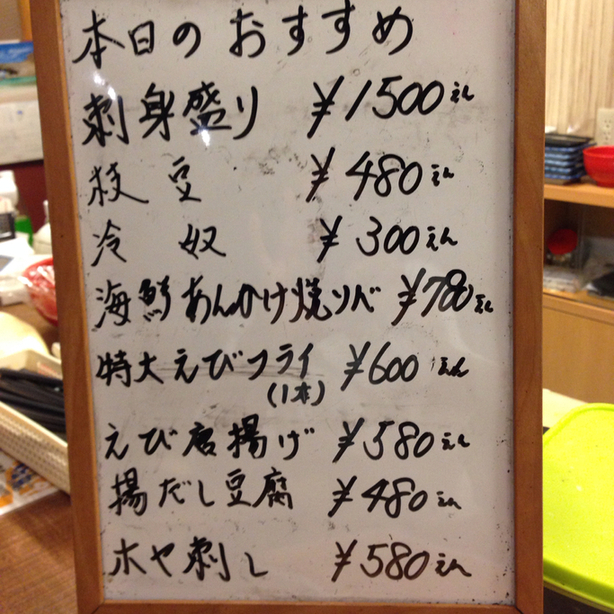 本日のおすすめ
刺身盛り ¥1500えん
枝豆 ¥480えん
冷奴 ¥300えん
海鮮あんかけ焼ソバ ¥780えん
特大えびフライ ¥600えん
(1本)
えび唐揚げ ¥580えん
揚だし豆腐 ¥480えん
ホヤ刺し ¥580えん